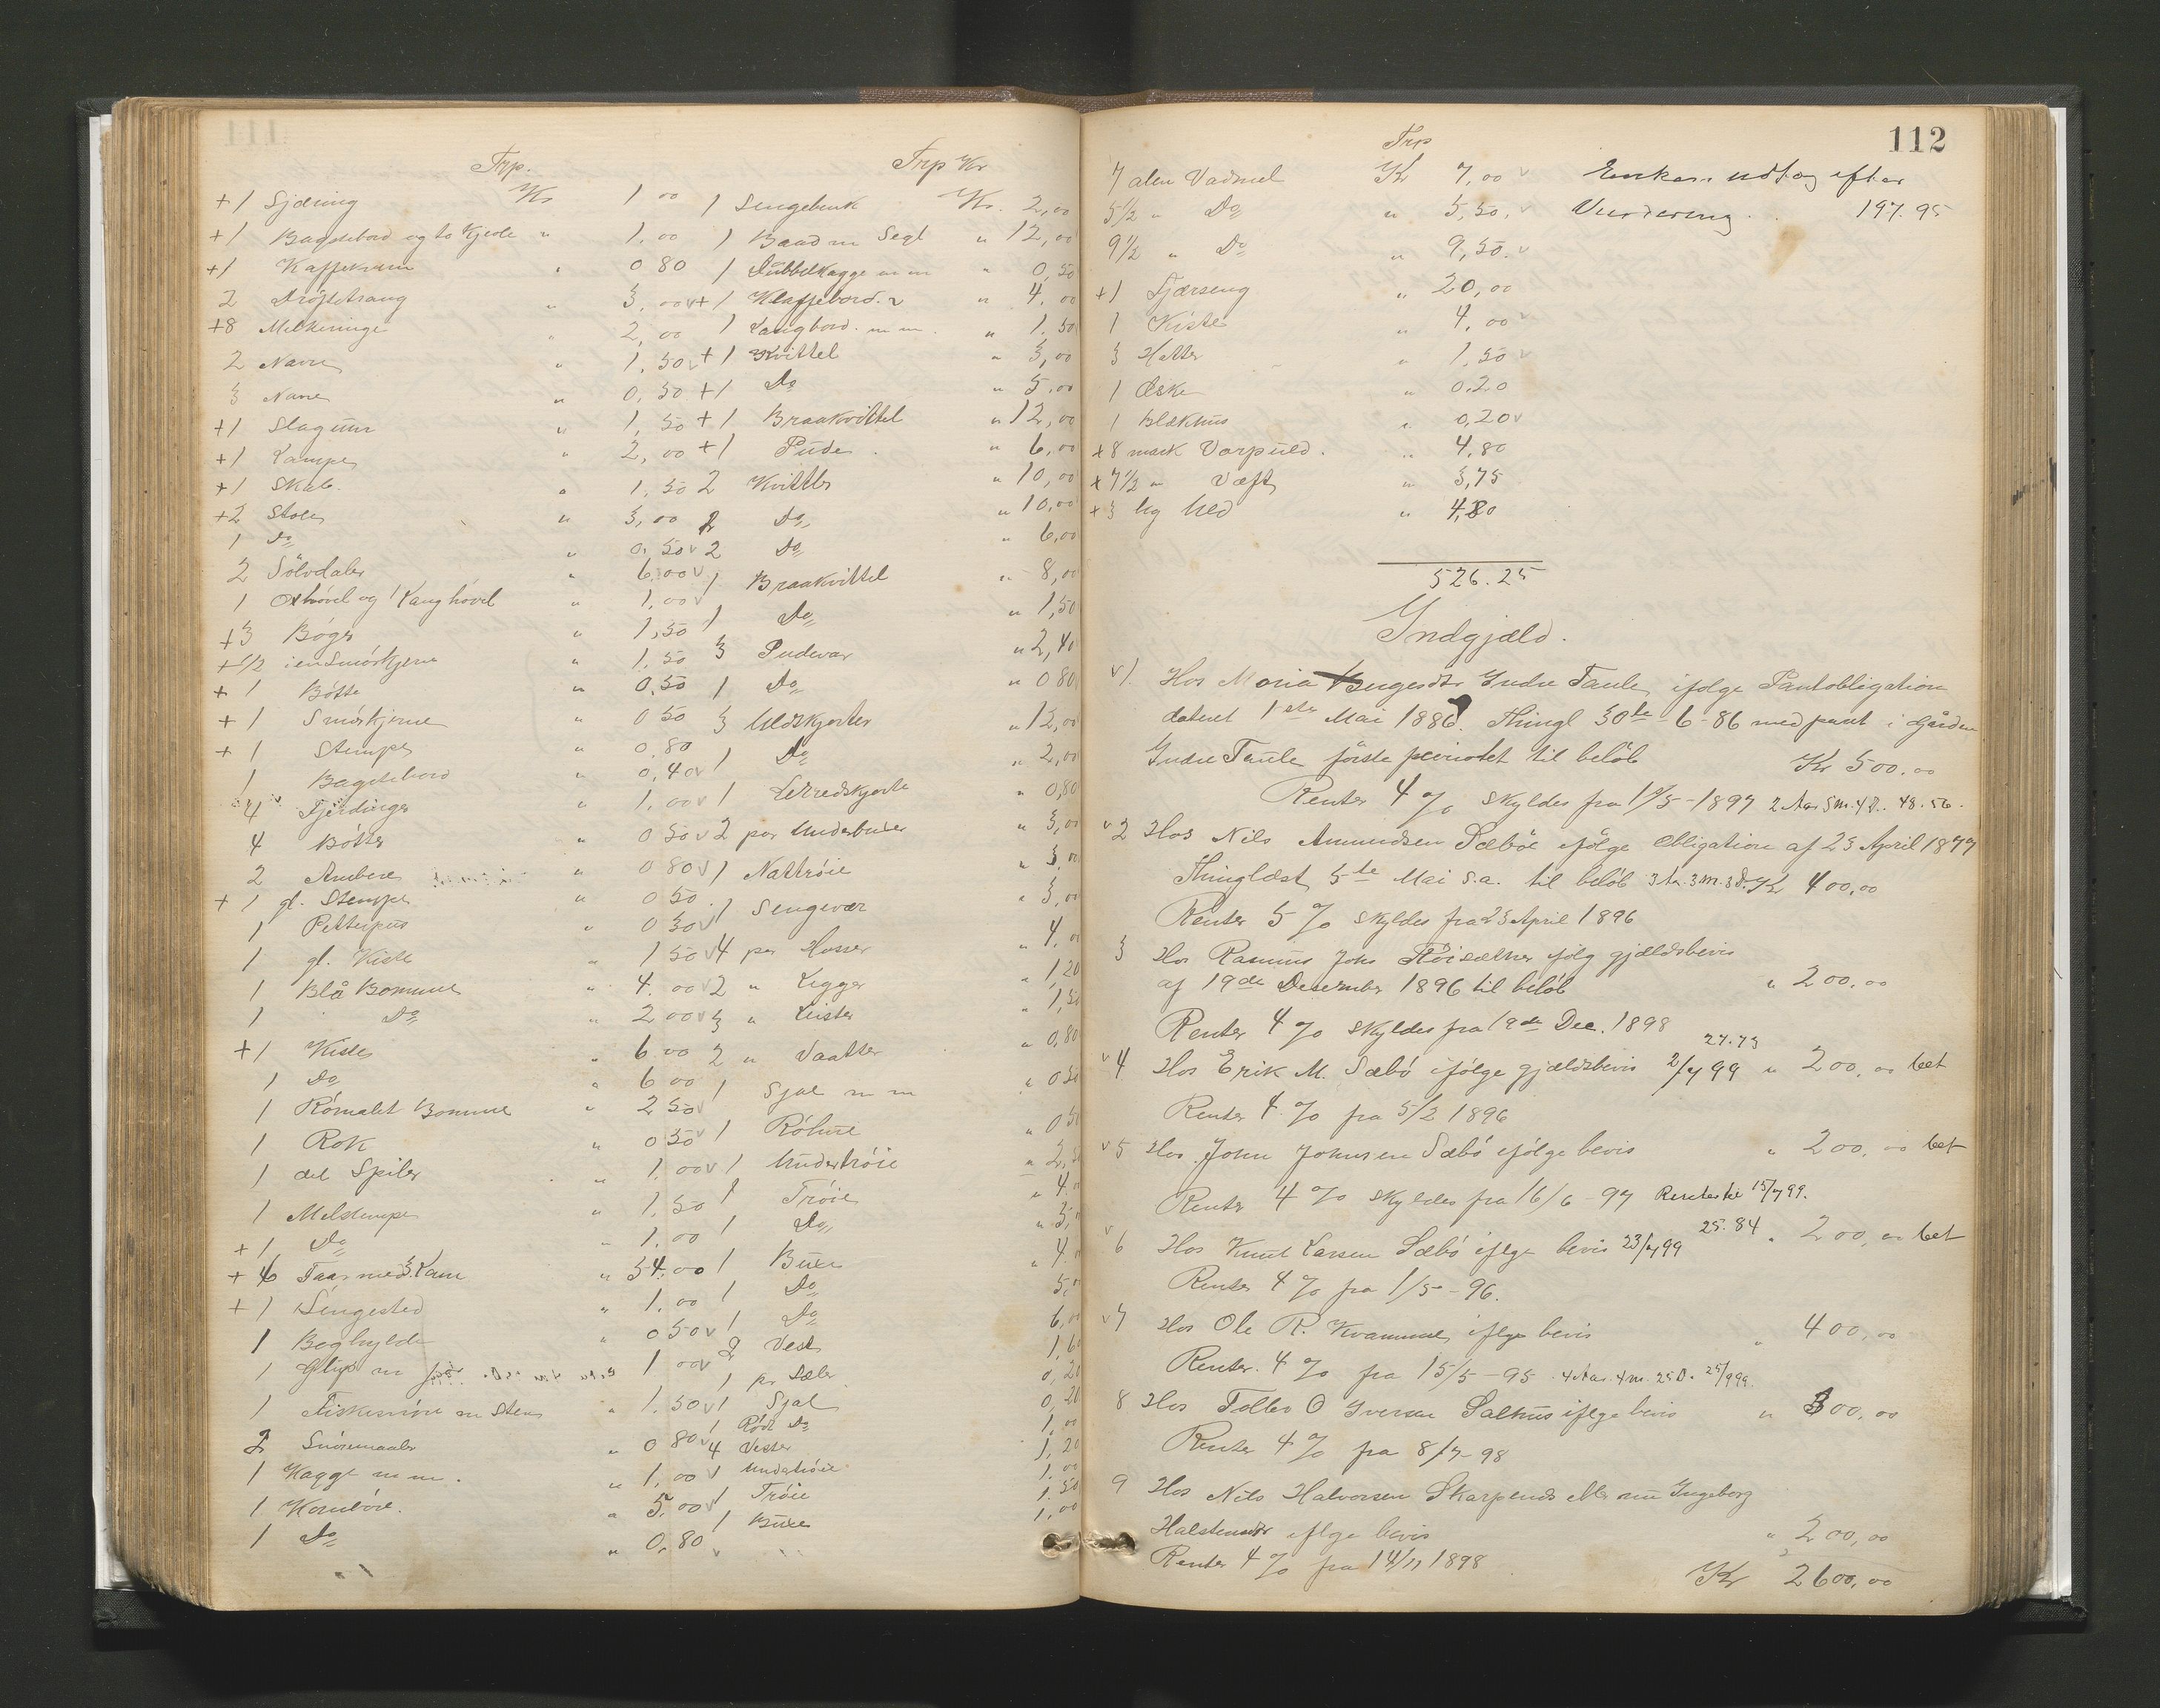 Trp.
+1 Sjæring Kr 1 00
+1 Bagstebord og to Kjede " 1.00
+1 Kaffekann " 0 80
2 " 3,00 v
+8 Melkeringe " 2,00
2 Navre " 1,50 v
3 Navre " 0,50
+1 Slaguur " 1,50
+1 Lampe " 2,00
+1 Skab. " 1,50
+2 Stole " 3,00
1 Do " 0,50 v
2 Sölvdaler " 6,00 v
1 Oxhövel og 1 Langhövel " 1,00 v
+3 Böger " 1,50
+1/2 i en Smörkjerne " 1.50
+1 Bötte " 0,50
+1 Smörkjerne " 0 50
+1 Stempe " 0,80
1 Bagstebord " 0,40 v
4 Fjerdinger " 1,00 v
4 Bötter " 0 50 v
2 Ambere " 0 80 v
+1 gl. Stempe " 0 50
1 " 0 30 v
1 gl. Kiste " 1 50 v
1 Blå Bomme " 4.00 v
1 Do " 2 00 v
+1 Kiste " 6 00
1 Do " 6 00
1 Römalet Bomme " 2 50
1 Rok " 0 50 v
1 del Spiler " 1,00 v
1 Melstempe " 1,50
+1 Do " 1.00
+6 Faar med 3 Lam " 34,00
+1 Sengested " 1,00
1 Boghylde " 0 50 v
1 Glip m 1 00 v
1 Fiskesnöre m Sten " 1,50 v
2 Snöremaaler " 0 80 v
1 Kagge m m. " 1,00 v
1 " 5,00 v
1 Do " 0,80 v
Trp Kr
1 Sengebenk Kr. 2,00
1 Baad m Segl " 12,00
1 Dubbelkagge m m " 0,50
+1 Klaffebord. " 4,00
1 Langbord m m. " 1.50
+1 Kvittel " 3,00
+1 Do " 5,00
+1 Braakvittel " 12,00
+1 Pude. " 6,00
2 Kvittler " 10,00
2 Do " 10,00
2 Do " 6,00
1 Braakvittel " 8,00
1 Do " 1,50
3 Pudevar " 2,40
1 Do " 0 80
3 Uldskjorter " 12,00
1 Do " 2,00
1 Lerredskjorte " 0,80
2 par Underbuxer " 3,00
1 Nattröie " 3,00
1 Sengevær " 3,00
4 par Hoser " 4,00
2 " Legger " 1,20
3 " Leister " 1,50
2 " Vaatter " 0,80
1 Sjal m m " 0 50
1 Röhue " 0 50
1 Undertröie " 2,50
1 Tröie " 4.
1 Do " 3,
1 Buxe " 4
1 Do 5,
1 Do 6,00
2 Vest 1,60
1 pr Sæler 0,20
1 Sjal 0,20
1 Rödt Do 1,00
4 Vester 1,20
1 Undertröie 1.00
1 Tröie 1.50
1 Buxe 1,00
112
Trp
7 alen Vadmel Kr 7,00 v
5 1/2 " Do " 5,50. v
9 1/2 " Do " 9,50. v
+1 Fjærseng " 20,00
1 Kiste " 4,00 v
3 Hatter " 1,50 v
1 Æske " 0.20
1 Blækhus " 0,20 v
+8 mark Varpuld. " 4,80
+7 1/2 " Væft " 3,75
+3 kg Uld " 4,80
Enkens udtag efter
Vurdering. 197.95
526.25
Indgjæld.
v 1. Hos Maria Indre Taule, ifölge Pantobligation
dateret 1ste Mai 1886. Thingl 30te-6-86 med pant i Gården
Indre Taule förste prioritet til belöb Kr 500.00
Renter 4 % skyldes fra 1/5-1897 2 Aar 5 M. 4 D. 48.56.
v 2 Hos Nils Amundsen Sæböe ifölge Obligation af 23 April 1877
Thinglæst 5te Mai s.a. til belöb 3 A. 3 M. 3 D. 400,00
Renter 5 % skyldes fra 23 April 1896
3 Hos Rasmus Johs Röisæther ifölg gjældsbevis
af 19de Desember 1896 til belöb " 200,00
Renter 4 % skyldes fra 19de Dec. 1898
27.73
v 4 Hos Erik M. Sæbö ifölge gjældsbevis 2/7 99 " 200,00 bet
Renter 4 % fra 5/2 1896
v 5 Hos John Johnsen Sæbö ifölge bevis " 200,00 bet
Renter 4 % skyldes fra 16/6-97 15/7 99.
25.84
v 6 Hos Knut Larsen Sæbö iflge bevis 23/7 99 " 200,00 bet
Renter 4 % fra 1/5-96.
v 7 Hos Ole R. Kvamme, iflge bevis " 400,00
Renter 4 % fra 15/5-95 4 Aar. 4 M. 25 D. 25/9 99.
8 Hos Tollev O Iversen Salhus iflge bevis " 300,00
Renter 4 % fra 8/7-98
9 Hos Nils Halvorsen Skarpenes Ell. nu Ingeborg
Halstensdtr iflge bevis " 200,00
Renter 4 % fra 14/11 1898
Kr 2600,00